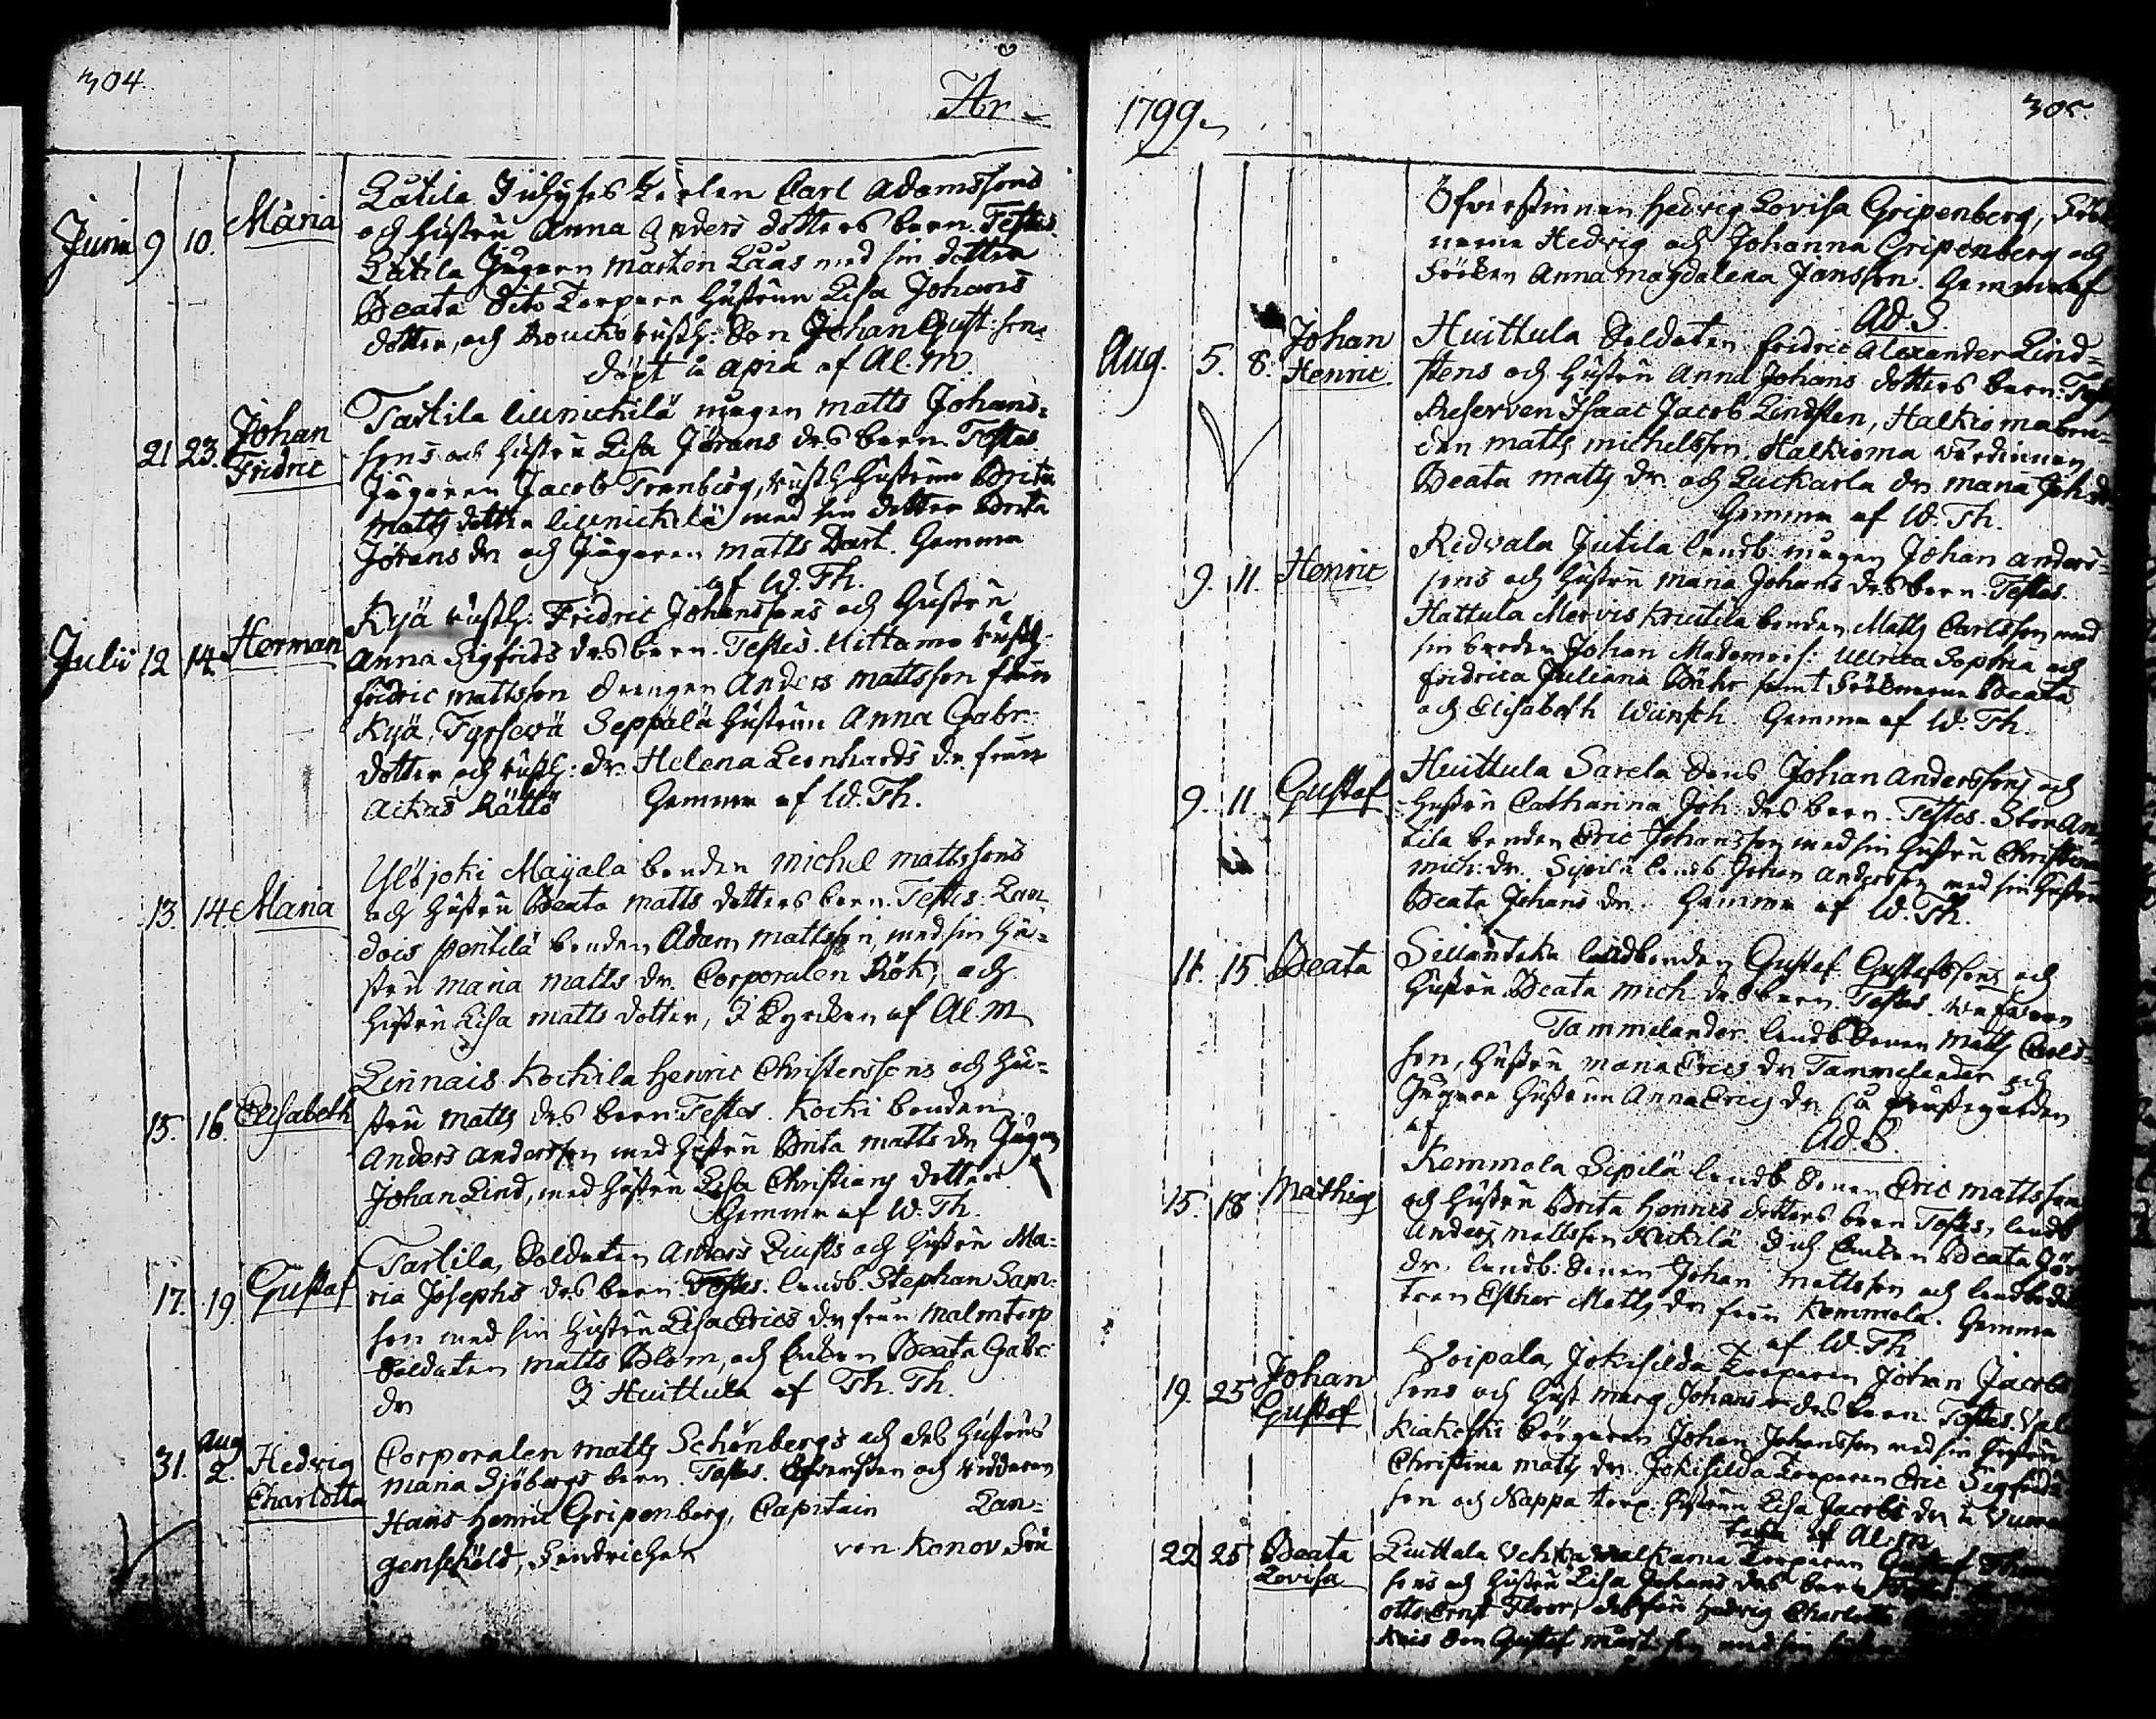 304.
År
Junii 9 10. Maria
Lätila Inhyses Karlen Carl Adamssons
och hustru Anna Anders dotters barn. Testes.
Lätila Jungaren Mårten Laas med sin dotter
Beata dito Torpare hustrun Lisa Johans
dotter, och Rousko rusth: Son Johan Gust:son.
döpt i Apia af Al. M.
21 23. Johan Fridric
Tartila Uusnickilä mågen Matts Johans=
sons och hustru Lisa Jörans drs barn. Testes
Jägaren Jacob Tranberg, rusth hustrun Brita
Matts dotter Uusnickilä med sin dotter Brita
Jörans dr och Jägaren Matts Dart. Hemma
af W. Th.
Julii 12 14. Herman
Kyä rusth: Fridric Johanssons och hustru
Anna Sigfrids drs barn. Testes. Uittamo rusth:
Fridric Mattsson drengen Anders Mattsson från
Kyä, Tyrsevä Seppälä hustrun Anna Gabr:
dotter och rusth: dr. Helena Leonhards dr. från
Ackas Rättö Hemma af W. Th.
13. 14. Maria
Ylöjoki Mayala bonden Michel Mattssons
och hustru Beata Matts dotters barn. Testes. Lan
dois Pentilä bonden Adam Mattsson med sin hu=
stru Maria Matts dr. Corporalen Rök, och
hustru Lisa Matts dotter, I Kyrckan af Al. M
15. 16. Elisabeth
Linnais Kockila Henric Christerssons och hu=
stru Matts drs barn Testes. Kocki bonden
Anders Andersson med hustru Brita Matts dr Jägaren
Johan Lind, med hustru Lisa Christians dotter
Hemma af W. Th.
17. 19. Gustaf
Tartila, Soldaten Anders Quists och hustru Ma=
ria Josephs drs barn Testes. landb. Stephan Sam=
son med sin hustru Lisa Erics dr från Malmtorp
Soldaten Matts Blom, och Enkan Beata Gabr:
dr I Huittula af Th. Th.
31. Aug 2. Hedvig Charlotta
Corporalen Matts Schönbergs och dess hustrus
Maria Sjöbergs barn. Testes. Öfversten och Riddaren
Hans Henric Gripenberg, Capitain Lan=
genschöld, Fendrichen von Konov Frü
1799.
305.
Öfverstinnan Hedvig Lovisa Gripenberg, Frök
narna Hedvig och Johanna Gripenberg och
Fröken Anna Magdalena Jansson. Hemma af
Ad. S.
Aug. 5. 8. Johan Henric
Huittula Soldaten Fridric Alexander Lind=
stens och hustru Anna Johans dotters barn. Test,
Reserven Isaac Jacob Lindsten, Halkioma bon=
den Matts Michelsson, Halkioma värdinnan
Beata Matts dr och Luckarla dr Maria Johs dr
Hemma af W. Th.
9. 11. Henric
Ridvala Jutila landb: mågen Johan Anders=
sons och hustru Maria Johans drs barn. Testes.
Hattula Mervis Krutila bonden Matts Carlsson med
sin broder Johan Mademois: Ullrica Sophia och
Fridrica Juliana Bähr samt Fröknarna Beata
och Elisabeth Wunsch. Hemma af W. Th.
9. 11. Gustaf
Huittula Sarela Sons Johan Anderssons och
hustru Catharina Joh: drs barn. Testes. Stor An
tila bonden Eric Johansson med sin hustru Christina
Mich: dr. Sipilä landb. Johan Andersson med sin hustru
Beata Johans dr. Hemma af W. Th.
11. 15. Beata
Sillantaka landbonden Gustaf Gustafssons och
hustru Beata Mich drs barn. Testes.
Tammelander landb Sonen Matts Carls=
son, hustru Maria Erics dr Tammelander och
Jägare hustrun Anna Erics dr på Prästgården
af Ad. S.
15. 18 Mathias
Kemmola Sipilä landb Sonen Eric Mattssons
och hustru Brita Henrics dotters barn Testes, landb
Anders Mattsson Nickilä och Enkan Beata Jör
dr. landb: Sonen Johan Mattsson och landbodot
tren Esther Matts dr från Kemmola. Hemma
af W. Th
19. 25 Johan Gustaf
Voipala, Jokihilda Torparen Johan Jacobs
sons och hust Marg Johans drs barn. Testes. Val
kiakoski Jägaren Johan Johansson med sin hustru
Christina Matts dr. Jokihilda Torparen Eric Sigfrids
son och Nappa torp: hustrun Lisa Jacobs dr
af Al. M
22 25 Beata Lovisa
Liuttala Torparen Gustaf Thom
sons och hustru Lisa Johans drs barn Testes.
Otto Ernst Floor, Hedvig Charlotta
Son Gustaf Mårt:son med sin